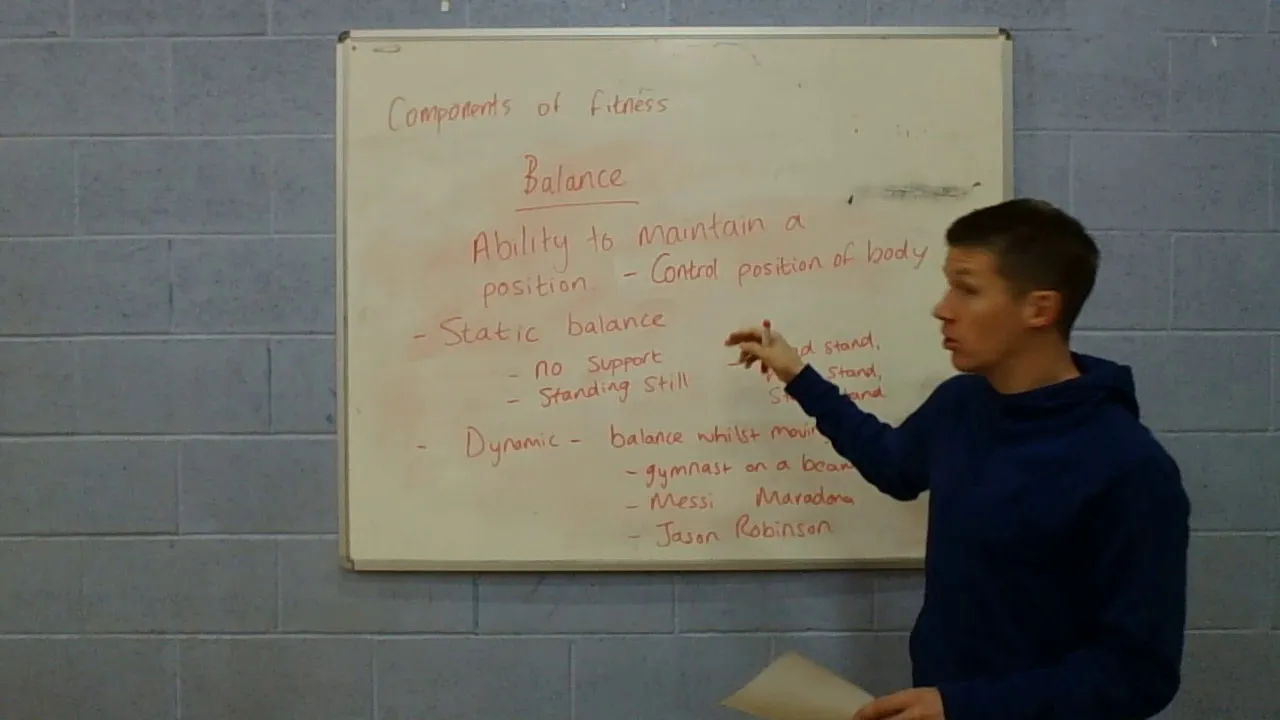 Components of fitness
Balance
Ability to maintain a
position - Control position of body
- Static balance
- no support
- Standing Still
stand,
stand,
- Dynamic - balance whilst
- gymnast on a
- Messi Maradona
- Jason Robinson